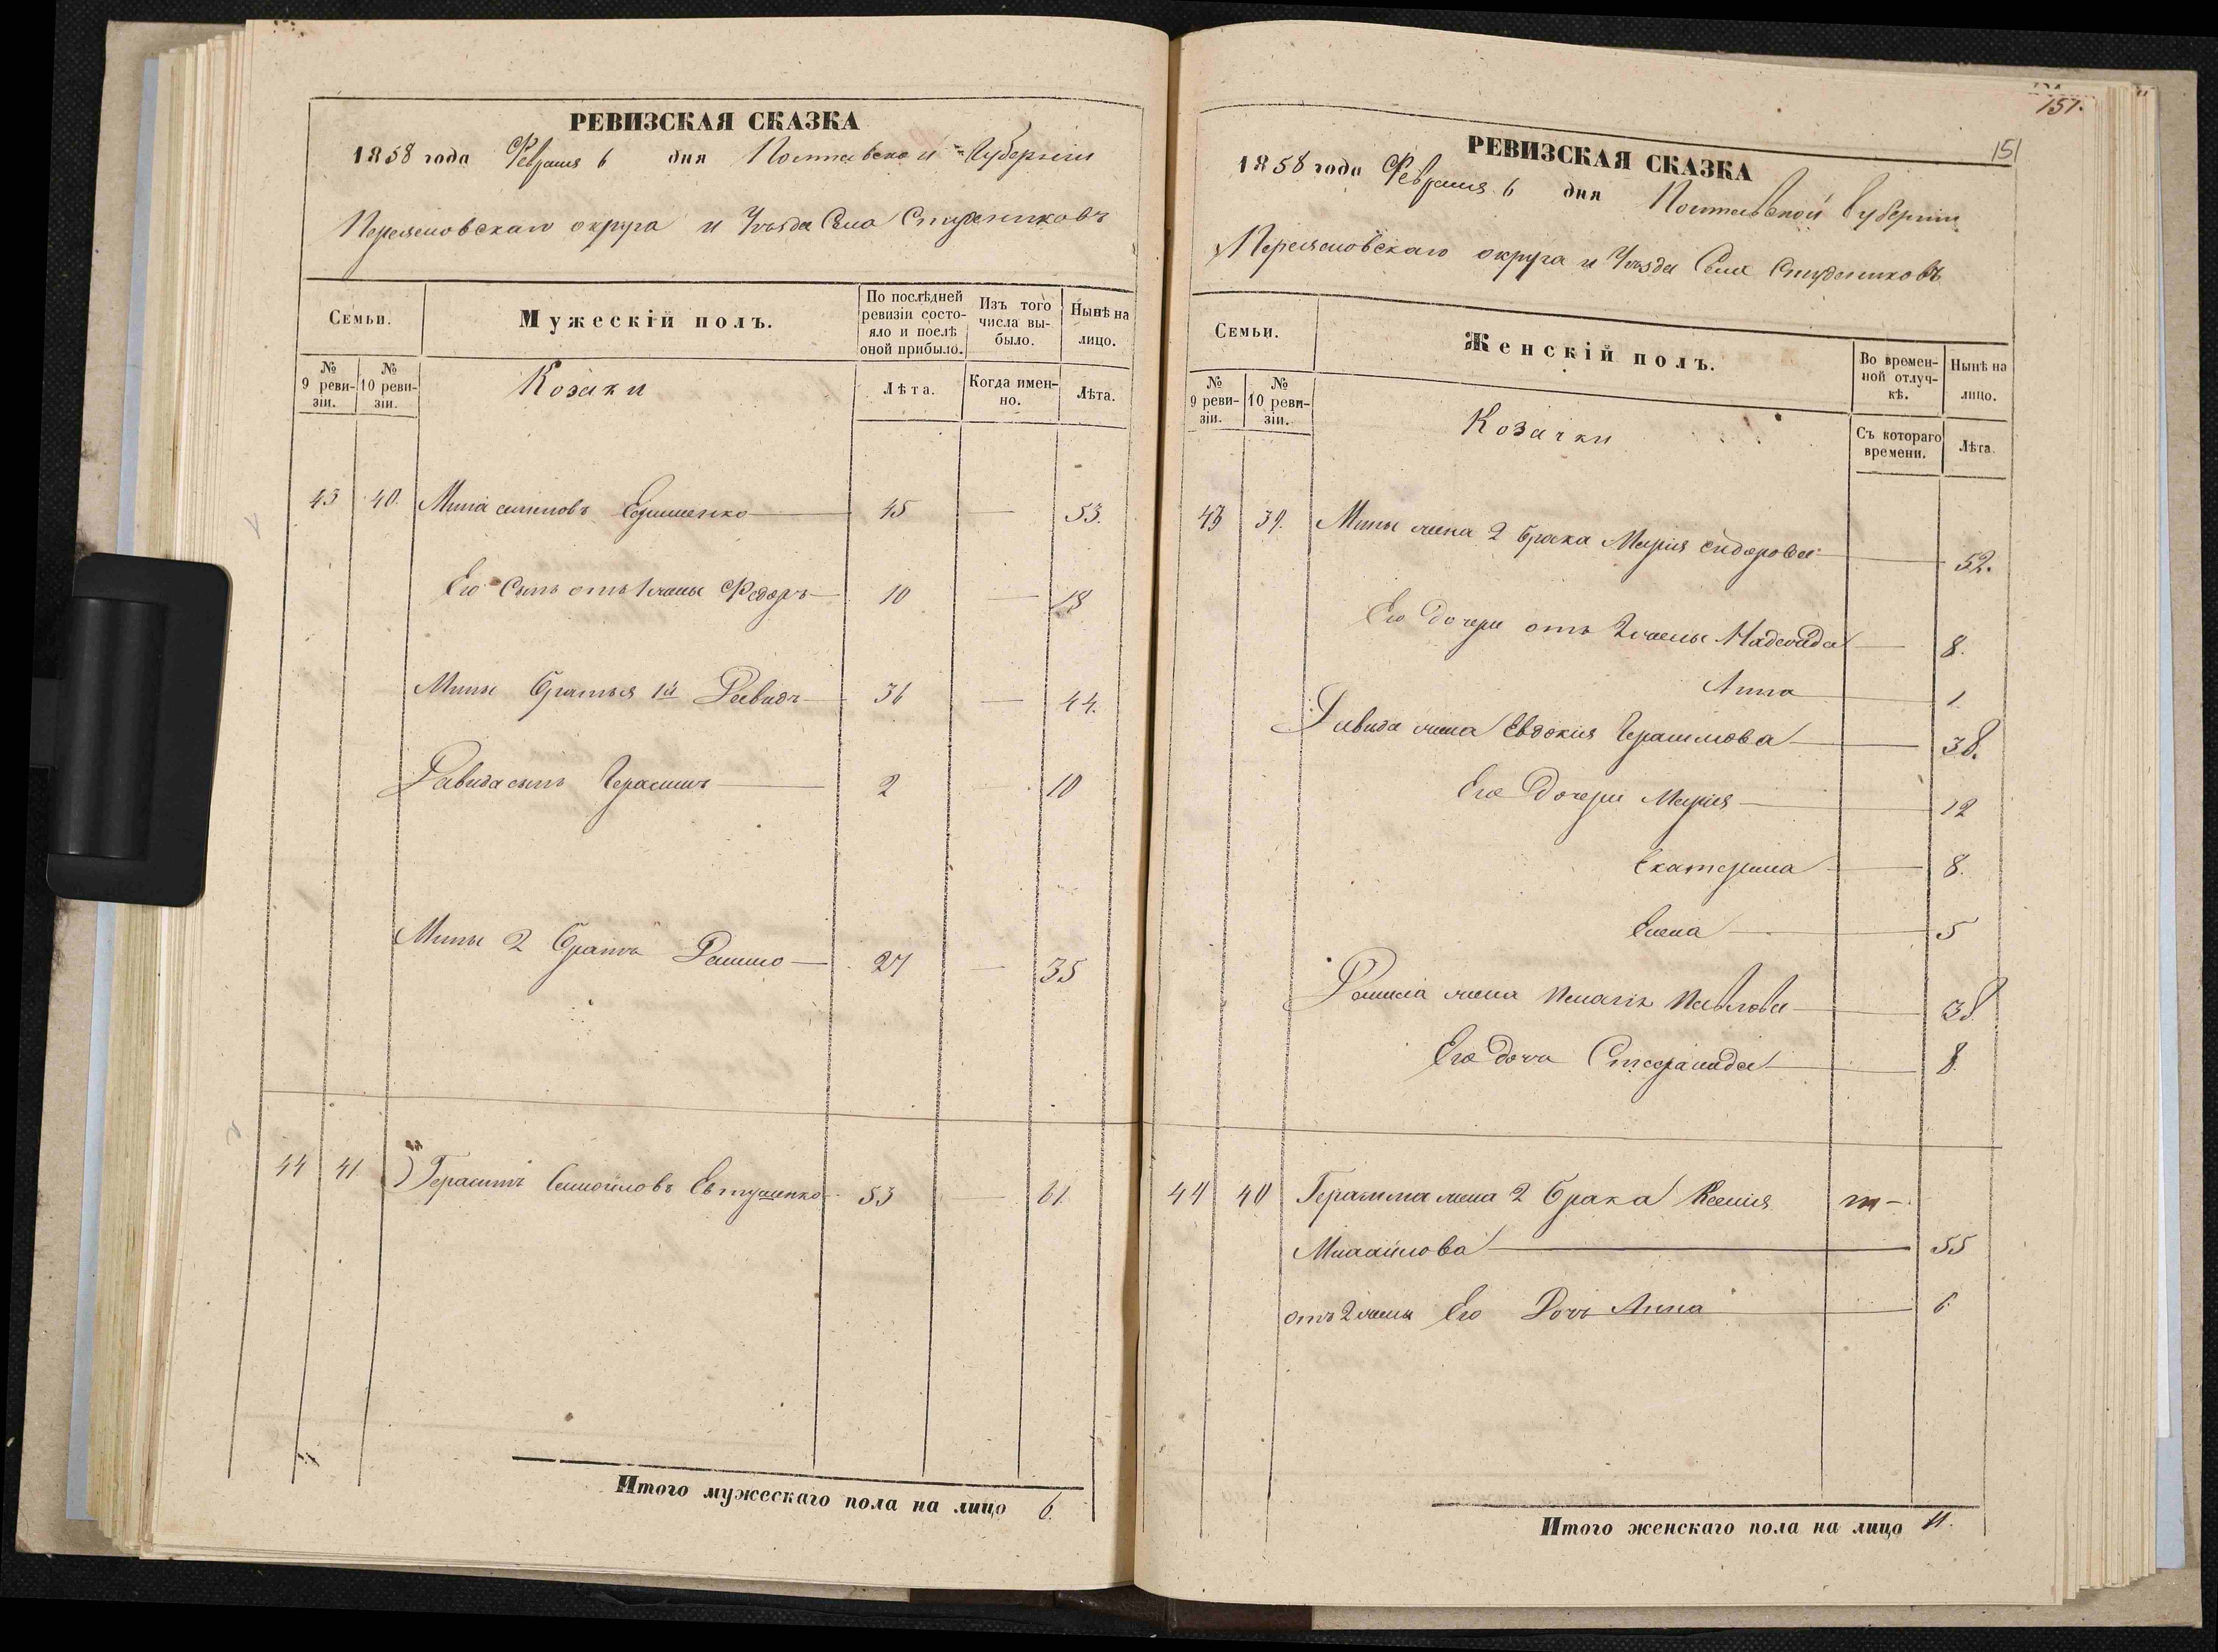 РЕВИЗСКАЯ СКАЗКА
1858 года Февраля 6 дня Полтавской Губерніи
Переяславскаго округа и Уѣзда Села Студениковъ
Семьи.
Мужескій полъ.
По послѣдней ревизіи состояло и послѣ оной прибыло.
Изъ того числа выбыло.
Нынѣ на лицо.
№ 9 ревизіи.
№ 10 ревизіи.
Козаки
Лѣта.
Когда именно.
Лѣта.
43 40. Мина 45 — 53.
Его Сынъ отъ 1 жены Федоръ 10 — 18
Мины братья 1й Давидъ 36 — 44.
Давида сынъ Герасимъ 2 10
Мины 2 братъ Данило 27 — 35
44 41 Герасимъ Самойловъ Евтушенко 53 — 61.
Итого мужескаго пола на лицо 6.
151.
151
РЕВИЗСКАЯ СКАЗКА
1858 года Февраля 6 дня Полтавской Губерніи
Переяславскаго округа и Уѣзда Села Студениковъ
Семьи.
Женскій полъ.
Во временной отлучкѣ.
Нынѣ на лицо.
№ 9 ревизіи.
№ 10 ревизіи.
Козачки
Съ котораго времени.
Лѣта.
43 39. Мины жена 2 брака Марія Сидорова 52.
Его дочери отъ 2 жены 8.
Анна 1
Давида жена Евдокия Герасимова 38.
Его Дочери Марія 12
Екатерина 8.
Елена 5
Данила жена Пелагія Павлова 38
Его дочь 8.
44 40 Герасима жена 2 брака Ксенія
Михайлова 55
отъ 2 жены Его Дочь Анна 6
Итого женскаго пола на лицо 11.